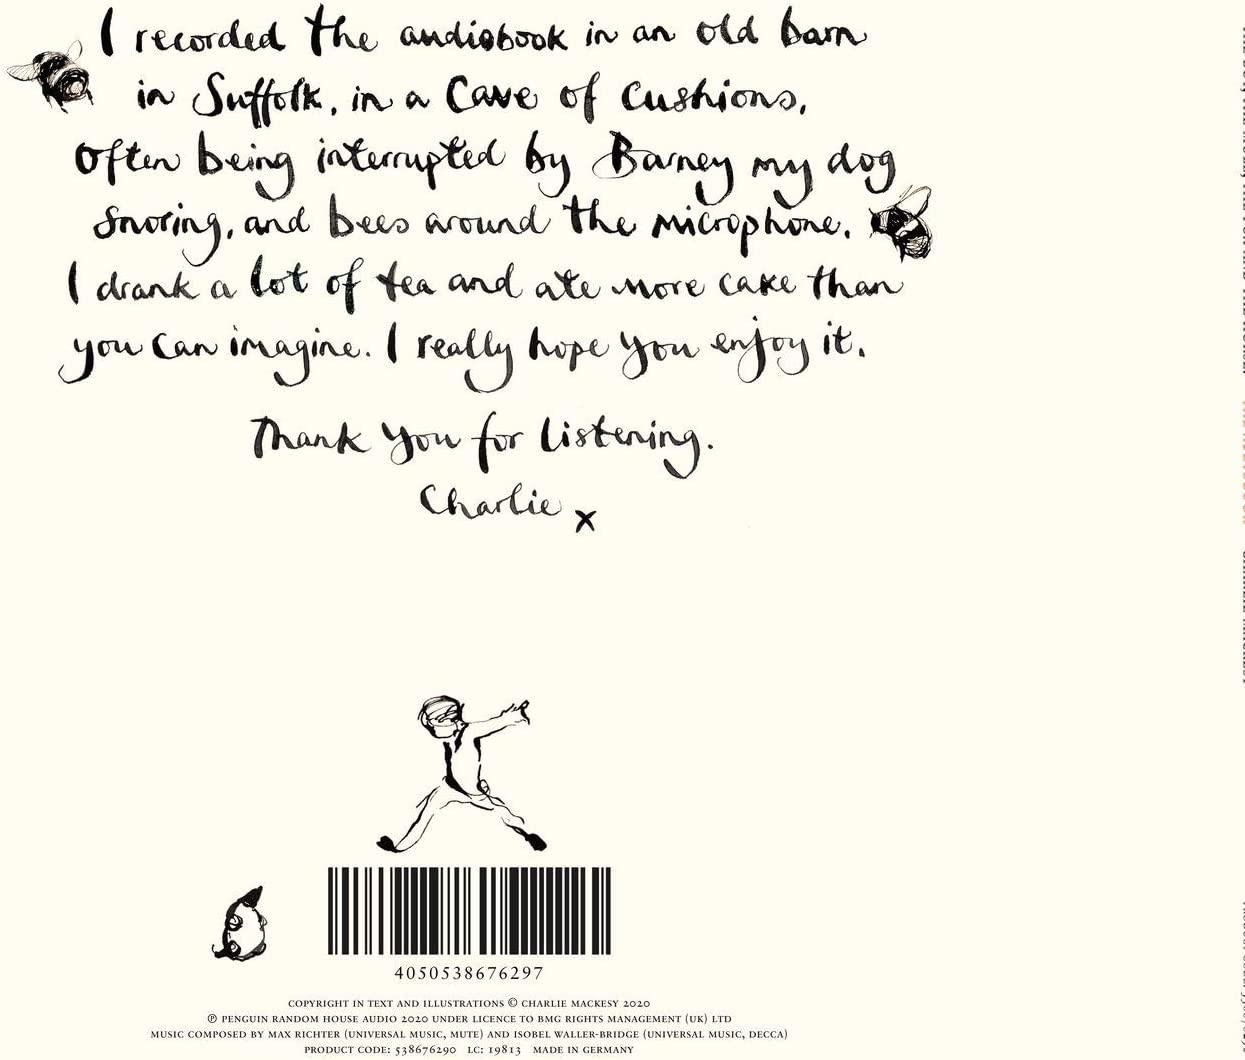 I recorded the audiobook in an old barn
in Suffolk, in a Cave of Cushions,
Often being interrupted by Barney my dog
Snoring, and bees around the microphone.
I drank a lot of tea and ate more cake than
you can imagine. I really hope you enjoy it.
Thank you for listening.
Charlie x
4050538676297
COPYRIGHT IN TEXT AND ILLUSTRATIONS © CHARLIE MACKESY 2020
℗ PENGUIN RANDOM HOUSE AUDIO 2020 UNDER LICENCE TO BMG RIGHTS MANAGEMENT (UK) LTD
MUSIC COMPOSED BY MAX RICHTER (UNIVERSAL MUSIC, MUTE) AND ISOBEL WALLER-BRIDGE (UNIVERSAL MUSIC, DECCA)
PRODUCT CODE: 538676290 LC: 19813 MADE IN GERMANY